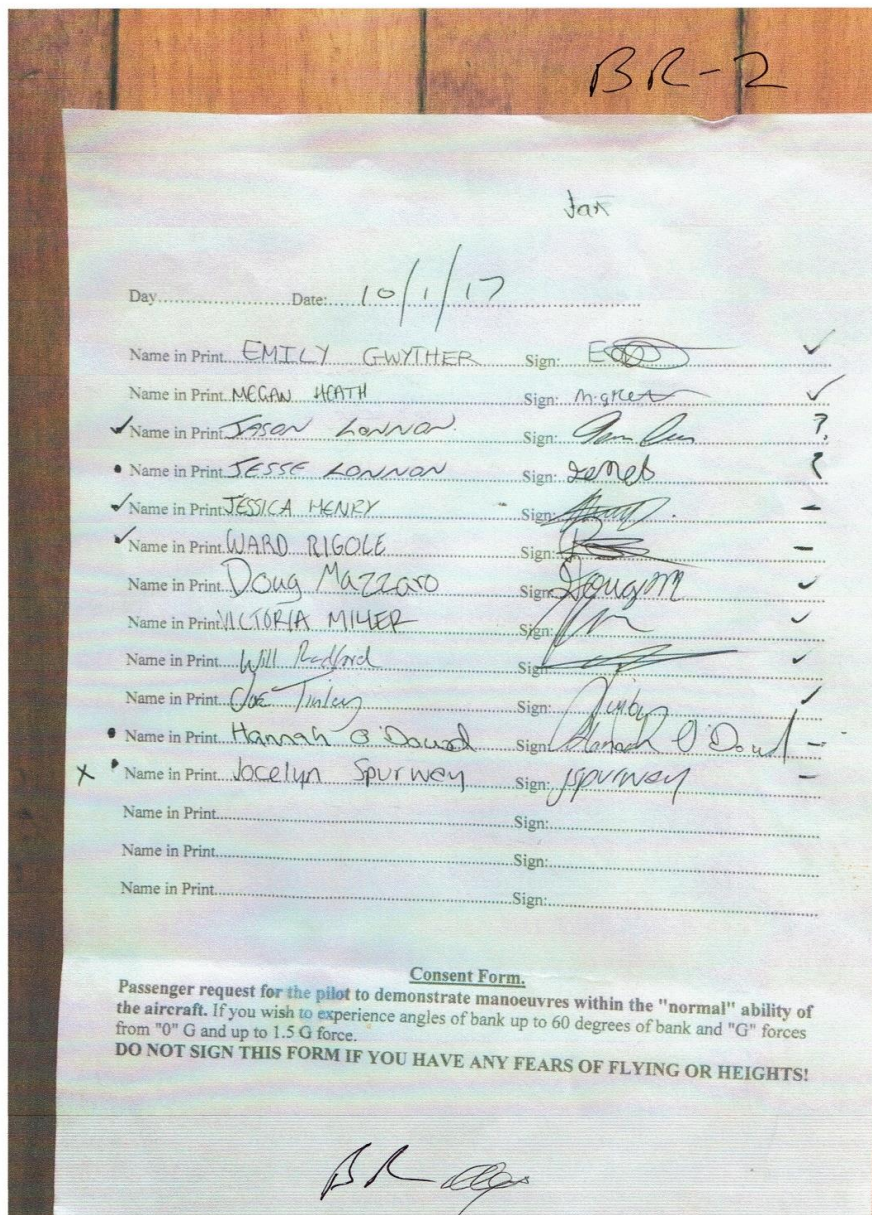 BR-2
Day.....................Date:.....10/1/17................................
Name in Print...EMILY GWYTHER Sign: E ✓
Name in Print..MEGAN HEATH Sign: ✓
✓ Name in Print..JASON LONNON Sign: ?
• Name in Print..JESSE LONNON Sign: ?
✓ Name in Print..JESSICA HENRY Sign: -
✓ Name in Print..WARD RIGOLE Sign: -
Name in Print..Doug Mazzaro Sign: DougM ✓
Name in Print..VICTORIA MILLER Sign: ✓
Name in Print...Will Radford Sign: ✓
Name in Print...Joe Tinley Sign: ✓
• Name in Print...Hannah O'Dowd Sign: Hannah O'Dowd -
x • Name in Print...Jocelyn Spurwey Sign: jspurwey -
Name in Print..................................................Sign:..................................................
Name in Print..................................................Sign:..................................................
Name in Print..................................................Sign:..................................................
Consent Form.
Passenger request for the pilot to demonstrate manoeuvres within the "normal" ability of
the aircraft. If you wish to experience angles of bank up to 60 degrees of bank and "G" forces
from "0" G and up to 1.5 G force.
DO NOT SIGN THIS FORM IF YOU HAVE ANY FEARS OF FLYING OR HEIGHTS!
BR